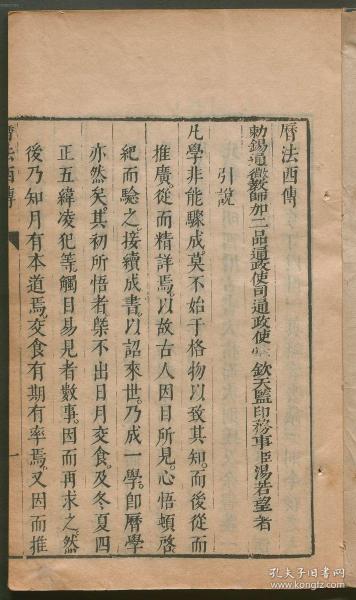 曆法西傳
勅錫通微教師加二品通政使司通政使掌欽天監印務事臣湯若望著
引說
凡學非能驟成莫不始于格物以致其知而後從而
推廣從而精詳焉以故古人因目所見心悟頓啓
紀而驗之接續成書以詔來世乃成一學卽曆學
亦然矣其初所悟者槩不出日月交食及冬夏四
正五緯凌犯等觸目易見者數事因而再求之然
後乃知月有本道焉交食有期有率焉又因而推
曆法西傳
一
孔夫子旧书网